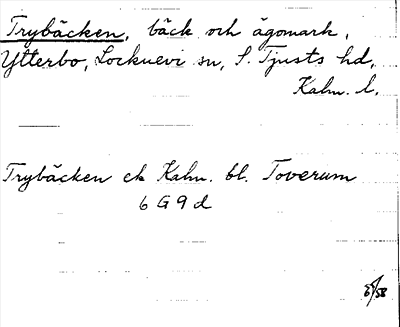 Trybäcken, bäck och ägomark,
Ytterbo, Locknevi sn, S. Tjusts hd,
Kalm. l.
Trybäcken ek Kalm. bl. Toverum
6 G 9 d
/58